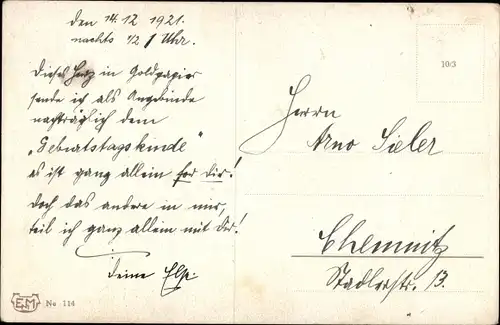 den 14.12 1921.
nachts 1/2 1 Uhr.
Dieses Herz in Goldpapier
sende ich als Angebinde
nachträglich dem
"Geburtstagskinde"
es ist ganz allein for dir!
doch das andere in mir,
teil ich ganz allein mit Dir!
Deine Else.
10/3
Herrn
Arno Sieler
Chemnitz
Stadlerstr. 13.
ESM No 114